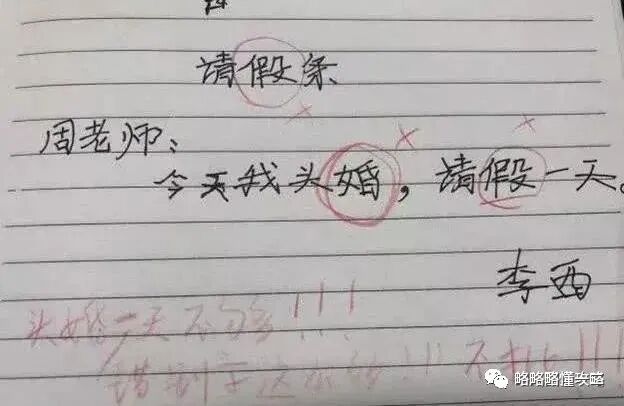 请假条
周老师：
今天我头婚，请假一天。
李西
头婚一天不够!!!
错别字这么多!!! 不批!!!
略略略懂攻略